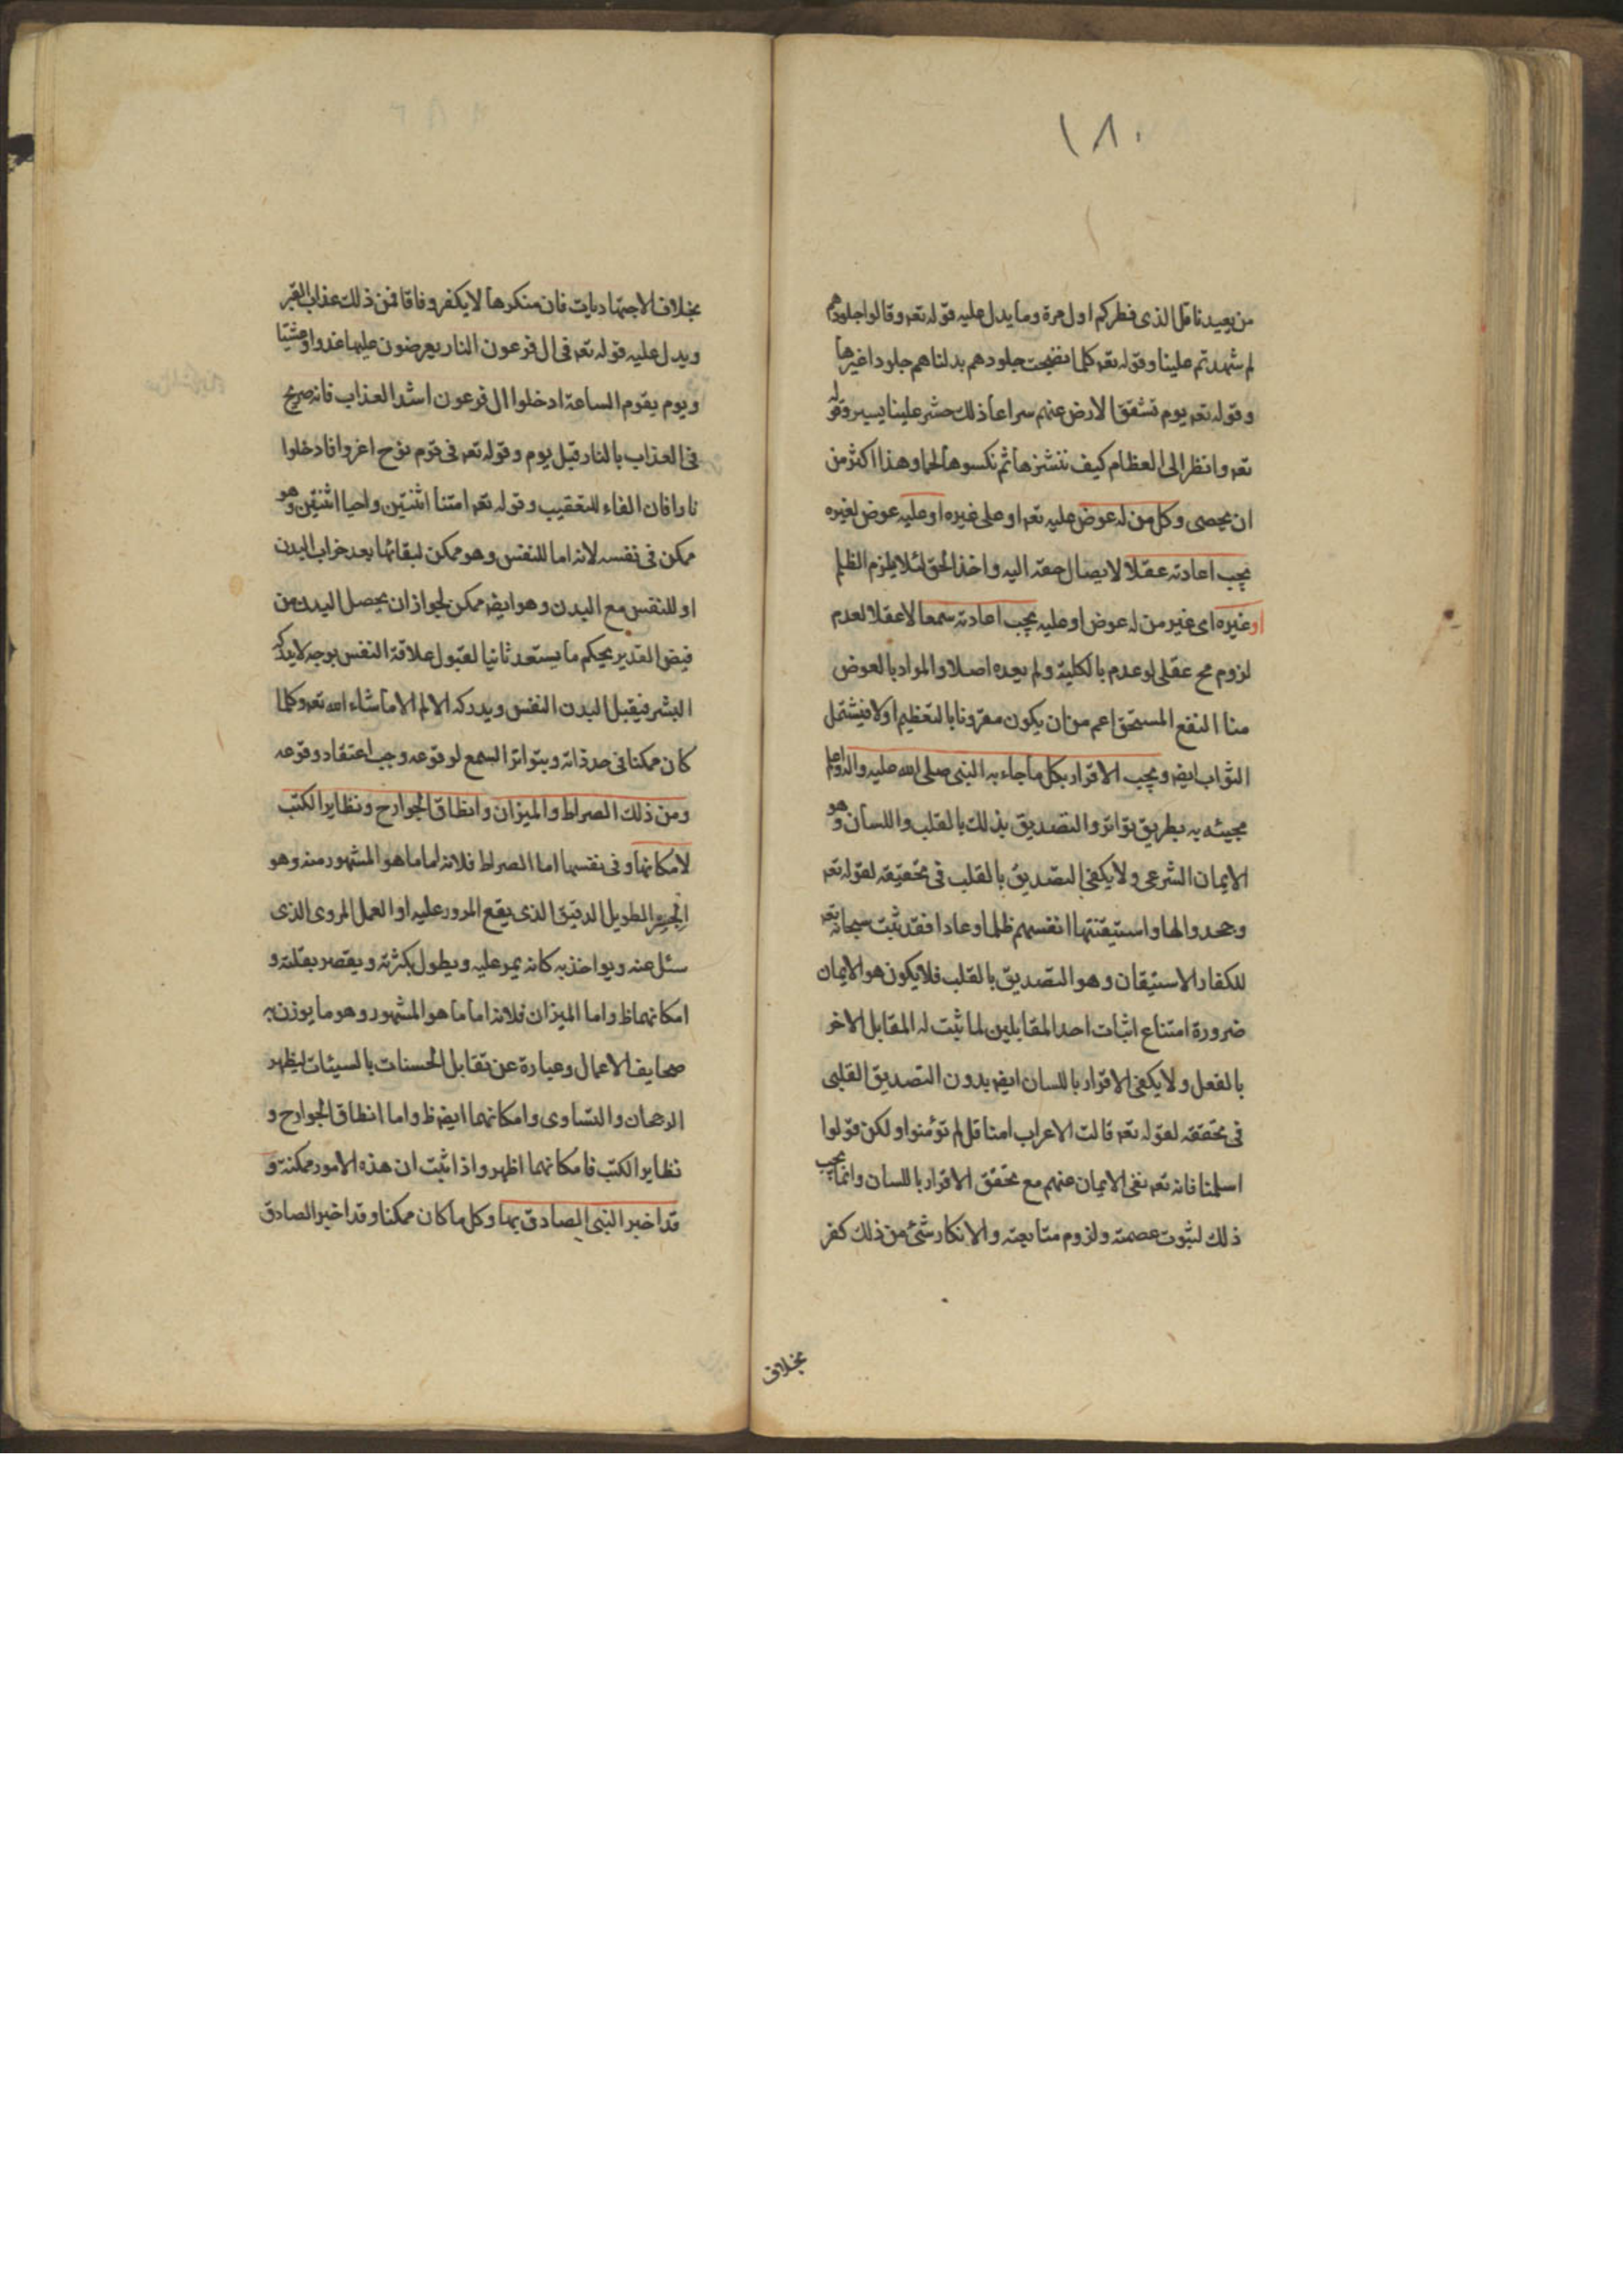 ١٨٠
من يعيدنا قل الذى فطركم اول مرة وما يدل عليه قوله تعہ وقالوا لجلودهم
لم شهدتم علينا وقوله تعہ كلما نضجت جلودهم بدلناهم جلودا غيرها
وقوله تعہ يوم تشقق الارض عنهم سراعا ذلك حشر علينا يسير وقوله
تعہ وانظر الى العظام كيف ننشزها ثم نكسوها لحما وهذا اكثر من
ان يحصى وكل من له عوض عليه تعہ او على غيره او عليه عوض لغيره
يجب اعادته عقلا لايصال حقه اليه واخذ الحق لئلا يلزم الظلم
او غيره اى غير من له عوض او عليه يجب اعادته سمعا لا عقلا لعدم
لزوم مح عقلى لو عدم بالكلية ولم يعده اصلا والمراد بالعوض
هنا النفع المستحق اعم من ان يكون مقرونا بالتعظيم اولا فيشتمل
الثواب ايضہ ويجب الاقرار بكل ما جاء به النبى صلى الله عليه واله وعلم
مجيئه به بطريق تواتر والتصديق بذلك بالقلب واللسان وهو
الايمان الشرعى ولا يكفى التصديق بالقلب فى تحقيقه لقوله تعہ
وجحدوا بها واستيقنتها انفسهم ظلما وعادا فقد ثبت سبحانه تعہ
للكفار الاستيقان وهو التصديق بالقلب فلا يكون هو الايمان
ضرورة امتناع اثبات احد المقابلين لما ثبت له المقابل الاخر
بالفعل ولا يكفى الاقرار باللسان ايضہ بدون التصديق القلبى
فى تحققه لقوله تعہ قالت الاعراب امنا قل لم تؤمنوا ولكن قولوا
اسلمنا فانه تعہ نفى الايمان عنهم مع تحقق الاقرار باللسان وانما يجب
ذلك لثبوت عصمته ولزوم متابعته والانكار شئ من ذلك كفر
بخلاف
بخلاف الاجتهاديات فان منكرها لا يكفر وفاقا فمن ذلك عذاب القبر
ويدل عليه قوله تعہ فى ال فرعون النار يعرضون عليها غدوا وعشيا
ويوم يقوم الساعة ادخلوا ال فرعون اشد العذاب فانه صريح
فى العذاب بالنار قبل يوم وقوله تعہ فى قوم نوح اغرقوا فادخلوا
نارا فان الفاء للتعقيب وقوله تعہ امتنا اثنتين واحيا اثنتين وهو
ممكن فى نفسه لانه اما للنفس وهو ممكن لبقائها بعد خراب البدن
او للنفس مع البدن وهو ايضہ ممكن لجواز ان يحصل البدن من
فيض القدير بحكم ما يستعد ثانيا لقبول علاقة النفس بوجه لا يدركه
البشر فيقبل البدن النفس ويدركه الالم الا ما شاء الله تعہ وكلما
كان ممكنا فى حد ذاته وبتواتر السمع لوقوعه وجب اعتقاد وقوعه
ومن ذلك الصراط والميزان وانطاق الجوارح ونظاير الكتب
لامكانها فى نفسها اما الصراط فلانه اما ما هو المشهور منه وهو
الجسر الطويل الدقيق الذى يقع المرور عليه او العمل المروى الذى
سئل عنه ويواخذ به كانه يمر عليه ويطول بكثرته ويقصر بقلته و
امكانهما ظ واما الميزان فلانه اما ما هو المشهور وهو ما يوزن به
صحايف الاعمال وعبارة عن تقابل الحسنات بالسيئات ليظهر
الرجحان والتساوى وامكانهما ايضہ ظ واما انطاق الجوارح و
نظاير الكتب فامكانهما اظهر واذا ثبت ان هذه الامور ممكنة و
قد اخبر النبى الصادق بها وكل ما كان ممكنا وقد اخبر الصادق